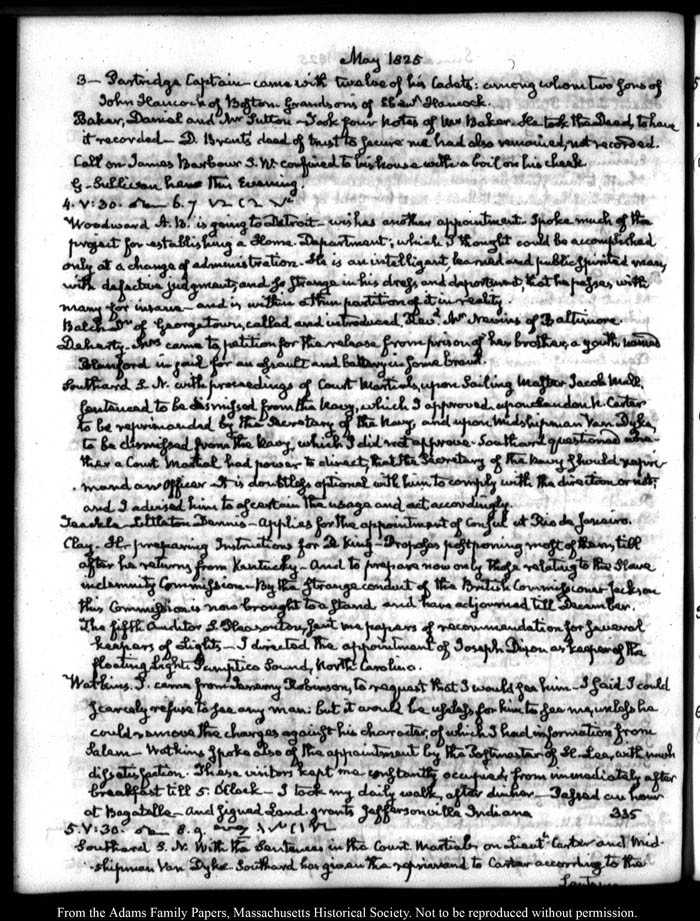 May 1825
3 — Partridge Captain — came with twelve of his Cadets: among whom two Sons of
John Hancock of Boston. Grandsons of Eben.r Hancock.
Baker, Daniel and Mr Sutton — Took four Notes of Mr Baker. He took the Deed, to have
it recorded — D. Brent's deed of trust to secure me had also remained, not recorded.
Call on James Barbour S. W. confined to his house with a boil on his cheek.
G. Sullivan here this Evening.
4. V: 30.
Woodward A. B. is going to Detroit — wishes another appointment. Spoke much of the
project for establishing a Home Department; which I thought could be accomplished
only at a change of administration. He is an intelligent, learned and public spirited man,
with defective judgment, and so strange in his dress and deportment, that he passes with
many for insane — and is within a thin partition of it in reality.
Balch Dr of Georgetown, called and introduced, Revd Mr Nevins of Baltimore.
Doherty. Mrs came to petition for the release from prison of her brother, a youth, named
Blanford in jail for an assault and battery in some brawl.
Southard S. N. with proceedings of Court Martials, upon Sailing Master Jacob Mull,
sentenced to be dismissed from the Navy, which I approved, upon Landon N. Carter
to be reprimanded by the Secretary of the Navy, and upon Midshipman Van Dyke,
to be dismissed from the Navy, which I did not approve. Southard questioned whe-
ther a Court Martial had power to direct, that the Secretary of the Navy should repri-
mand an Officer. It is doubtless optional with him to comply with the direction or not;
and I advised him to ascertain the usage and act accordingly.
Teackle Littleton Dennis — Applies for the appointment of Consul at Rio de Janeiro.
Clay. H. preparing Instructions for R. King — Proposes postponing most of them, till
after he returns from Kentucky — And to prepare now only those relating to the Slave
indemnity Commission — By the strange conduct of the British Commissioner Jackson
this Commission is now brought to a stand and have adjourned till December.
The fifth Auditor S. Pleasonton, sent me papers of recommendation for several
keepers of Lights — I directed the appointment of Joseph Dixon as keeper of the
floating Light Pamptico Sound, North Carolina.
Watkins. T. came from Jeremy Robinson, to request that I would see him — I said I could
scarcely refuse to see any man; but it would be useless for him to see me, unless he
could remove the charges against his character, of which I had information from
Salem — Watkins spoke also of the appointment by the Postmaster of H. Lee, with much
dissatisfaction. These visitors kept me constantly occupied, from immediately after
breakfast till 5. O'Clock — I took my daily walk, after dinner — Passed an hour
at Bagatelle — And signed Land-grants Jeffersonville Indiana 335
5. V: 30. 8. 9.
Southard S. N. With the Sentences in the Court Martials on Lieutt Carter and Mid-
shipman Van Dyke. Southard has given the reprimand to Carter according to the
Sentence
From the Adams Family Papers, Massachusetts Historical Society. Not to be reproduced without permission.